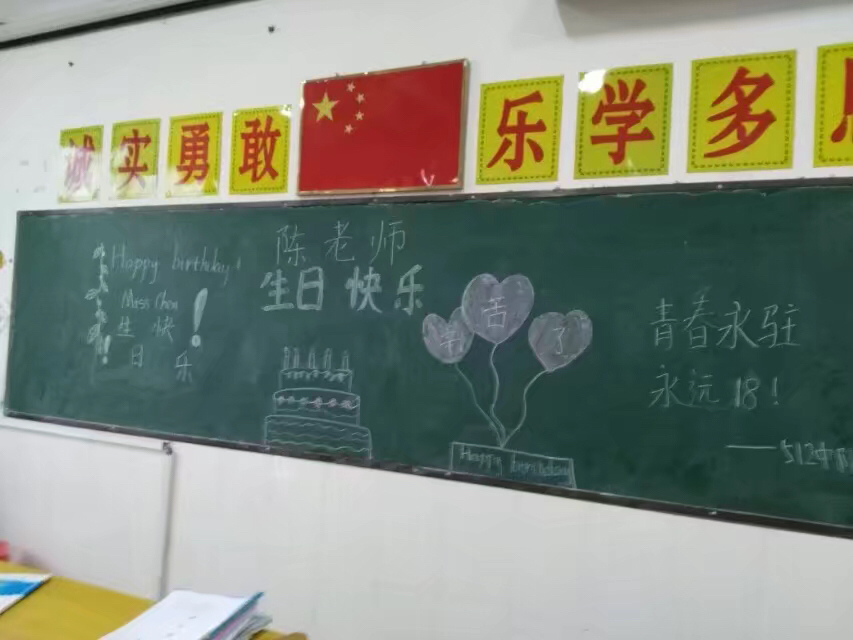 诚实勇敢
乐学多
Happy birthday!
Miss Chen
生快!
日乐
陈老师
生日快乐
辛苦了
Happy birthday
青春永驻
永远18!
——512中队